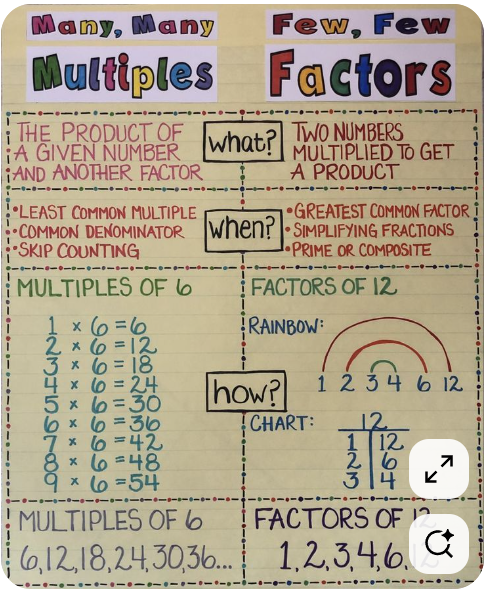 Many, Many
Multiples
Few, Few
Factors
THE PRODUCT OF
A GIVEN NUMBER
AND ANOTHER FACTOR
what?
TWO NUMBERS
MULTIPLIED TO GET
A PRODUCT
•LEAST COMMON MULTIPLE
•COMMON DENOMINATOR
•SKIP COUNTING
when?
•GREATEST COMMON FACTOR
•SIMPLIFYING FRACTIONS
•PRIME OR COMPOSITE
MULTIPLES OF 6
1 x 6 = 6
2 x 6 = 12
3 x 6 = 18
4 x 6 = 24
5 x 6 = 30
6 x 6 = 36
7 x 6 = 42
8 x 6 = 48
9 x 6 = 54
how?
FACTORS OF 12
RAINBOW:
1 2 3 4 6 12
CHART:
12
1 12
2 6
3 4
MULTIPLES OF 6
6,12,18,24,30,36...
FACTORS OF 12
1,2,3,4,6,12